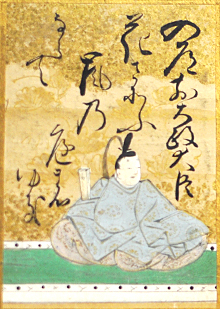 入道前太政大臣
花さそふ
嵐乃
庭の
ゆき
ならて